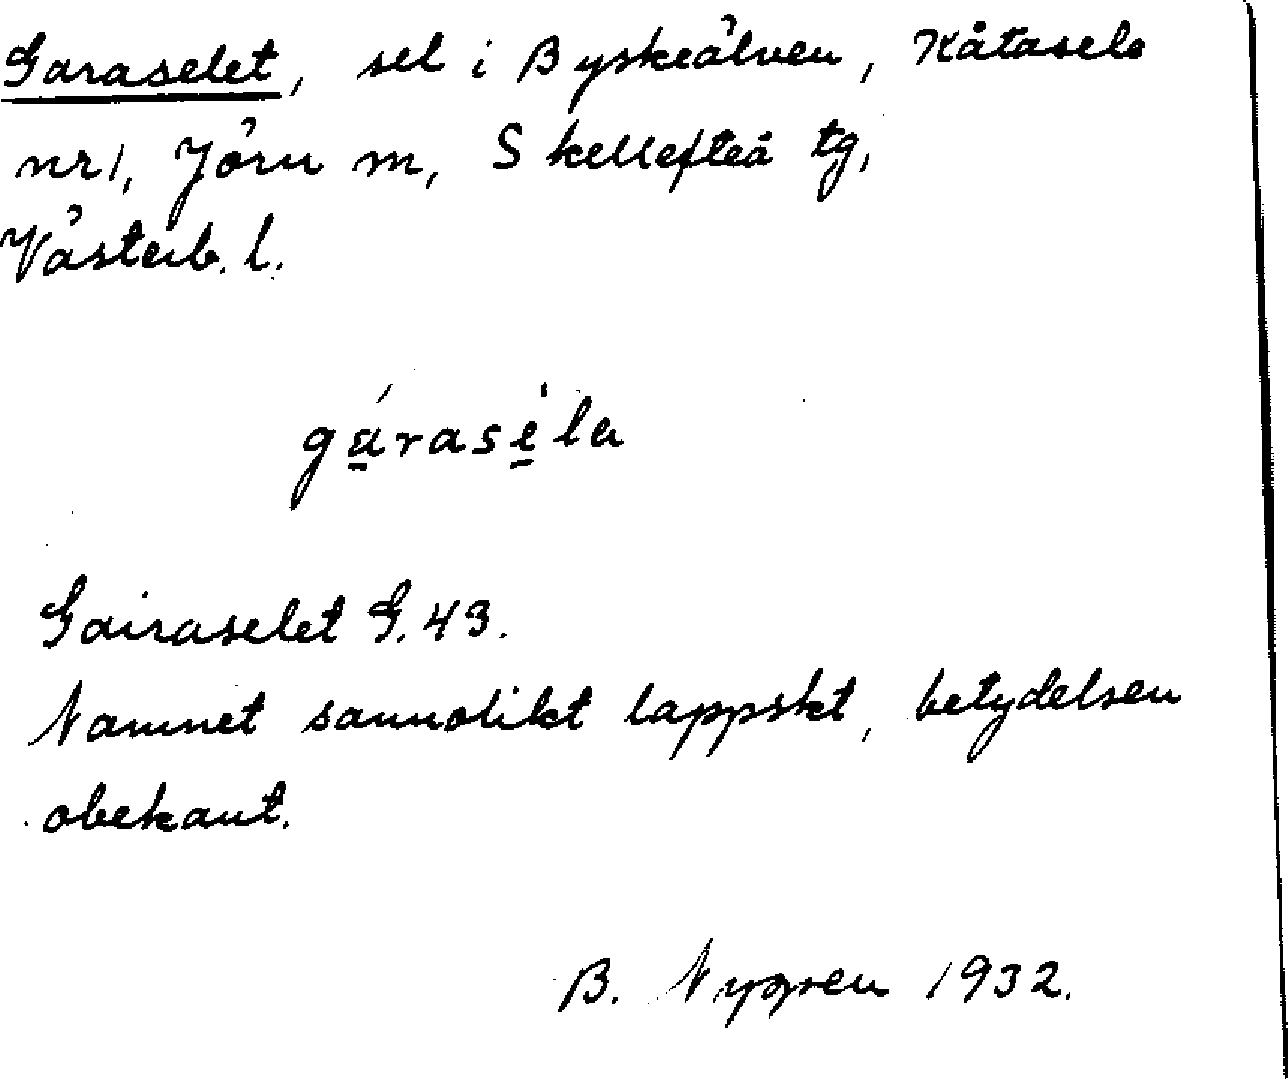 Garaselet, sel i Byskeälven, Kåtasele
nr 1, Jörn m, Skellefteå tg,
Västerb. l.
gárasé̱la
Gairaselet G. 43.
Namnet sannolikt lappskt, betydelsen
obekant.
B. Nygren 1932.